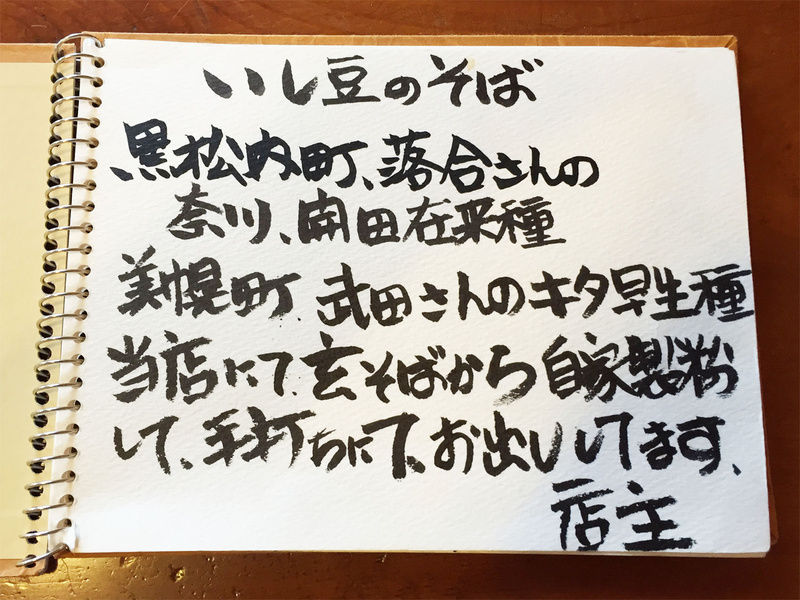 いし豆のそば
黒松内町、落合さんの
奈川、開田在来種
美幌町、武田さんのキタ早生種
当店にて、玄そばから自家製粉
して、手打ちにて、お出ししてます、
店主